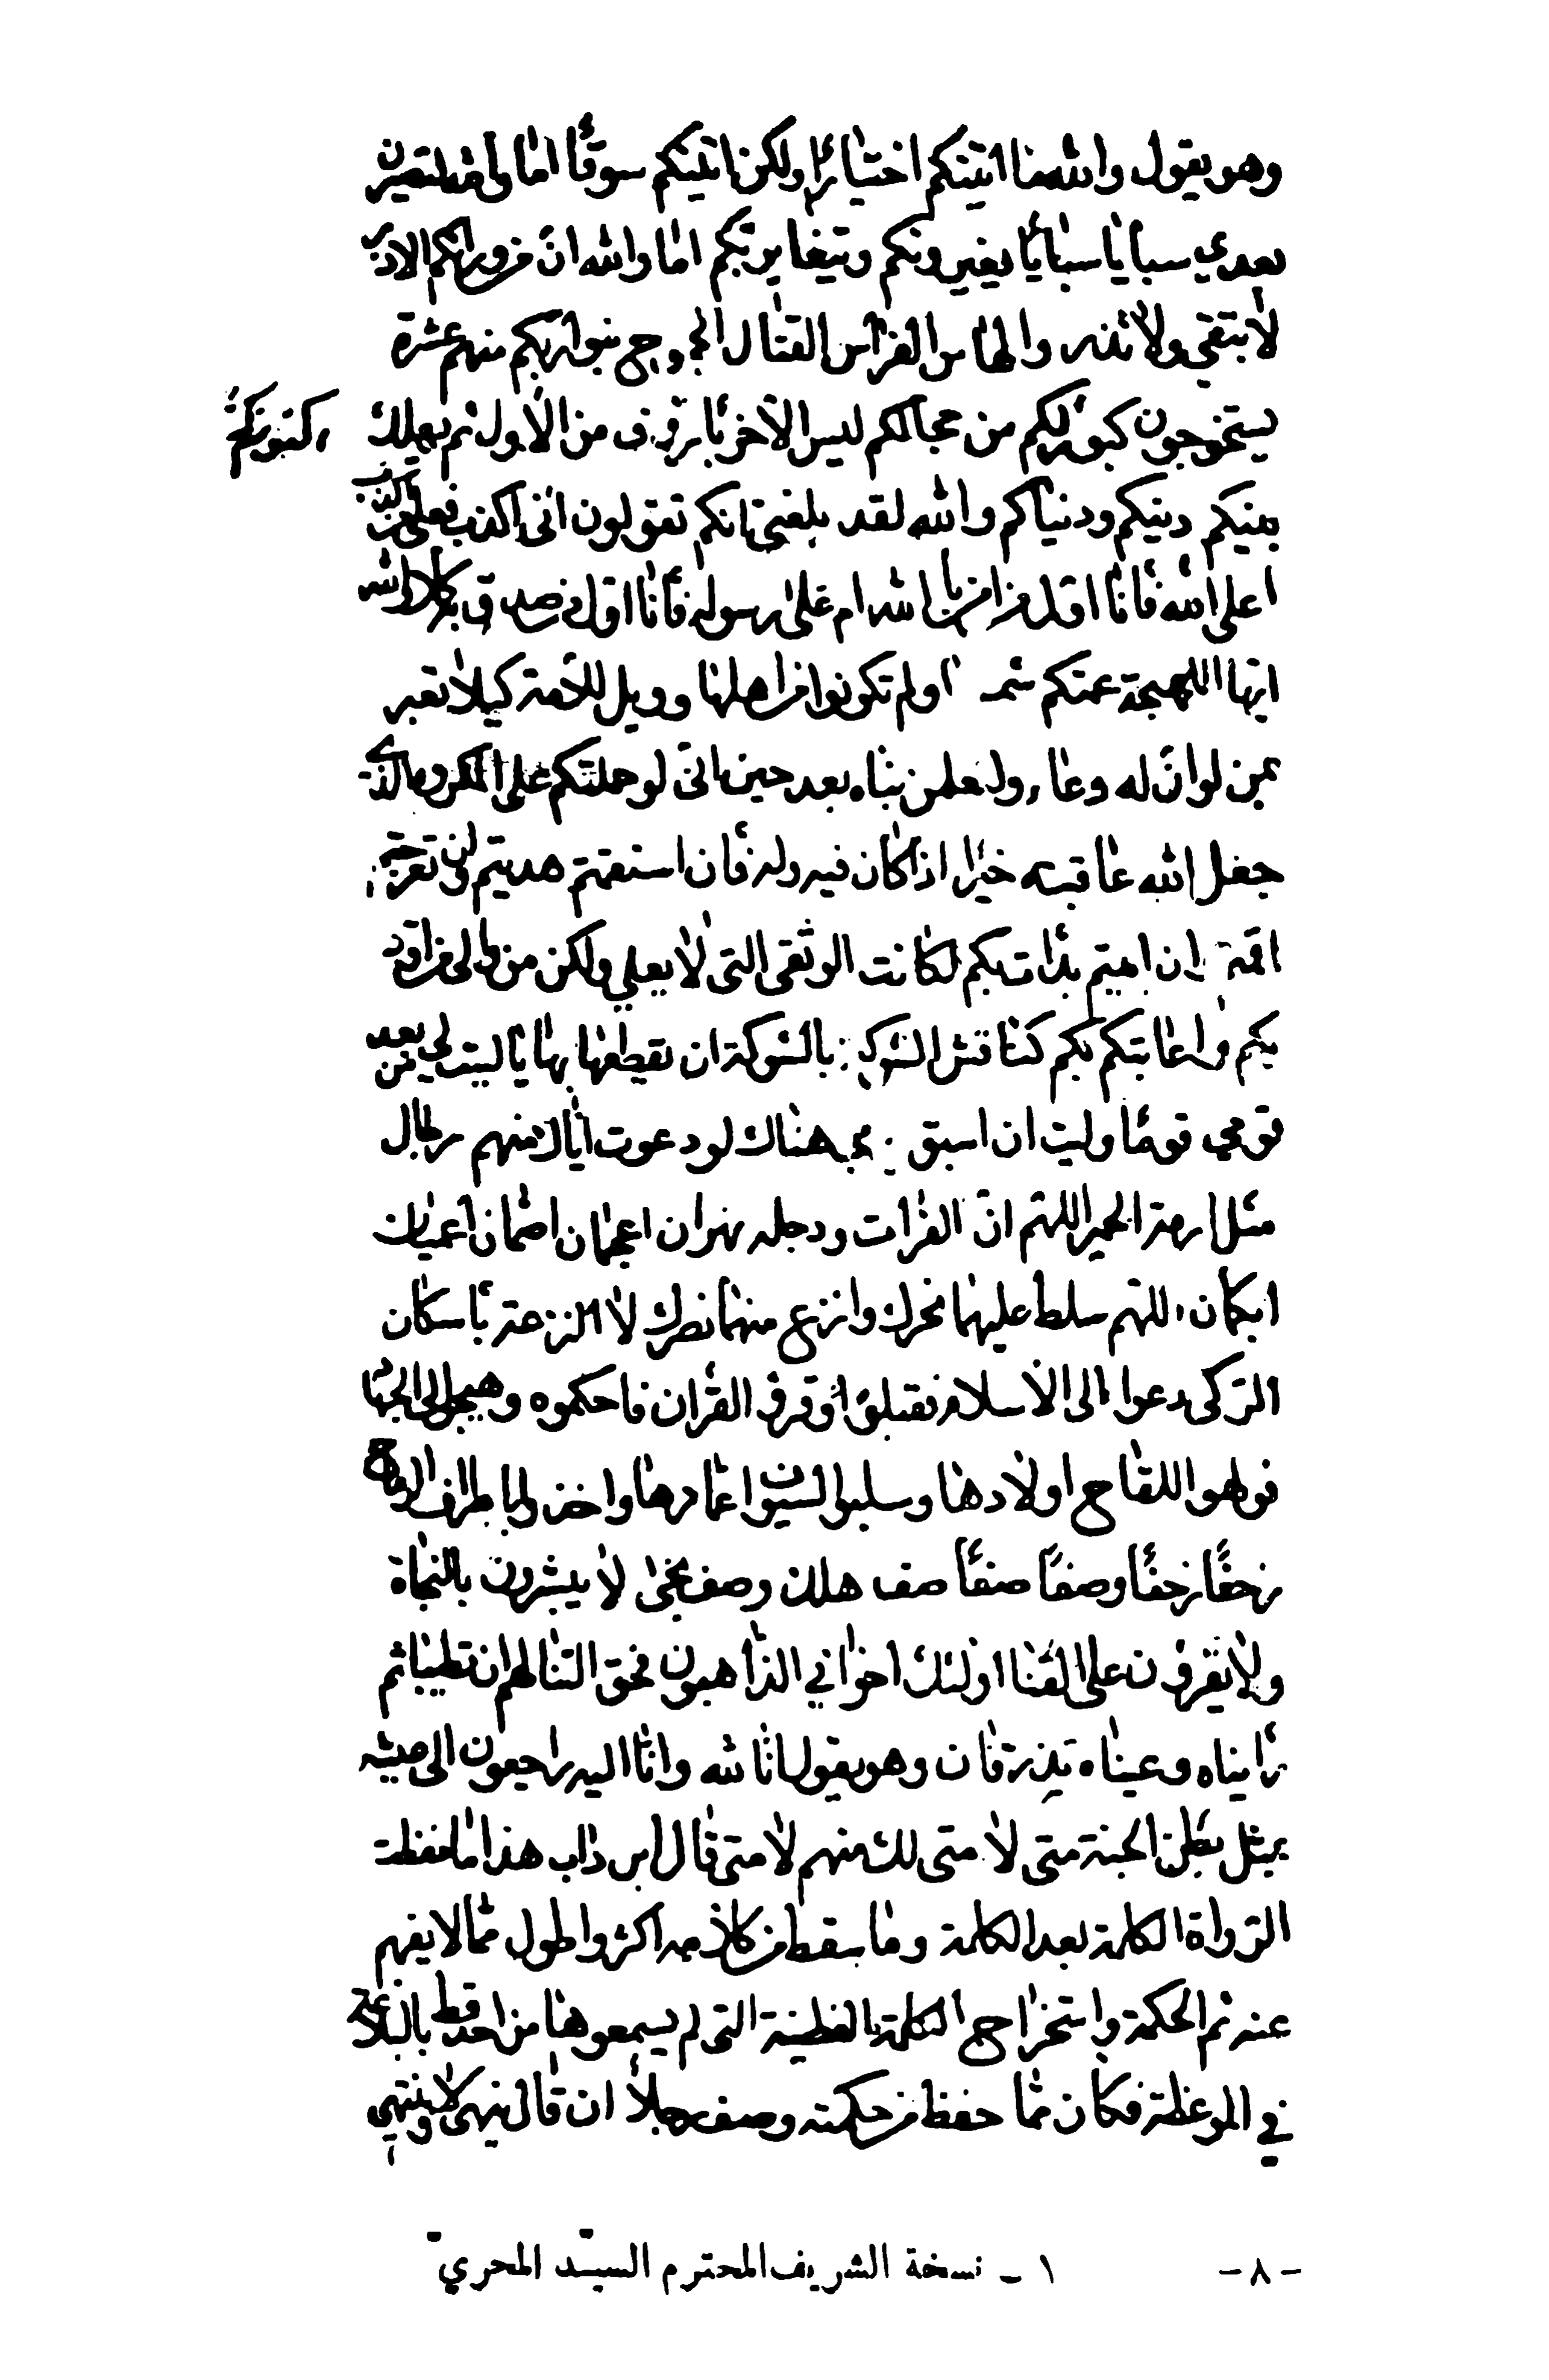 وهو يقول والله ما اتيتكم اختيارًا ولكن اتيتكم سوقًا اما والله لتصيرن
بعدي سبايا سبايًا يغيرونكم ويتغاير بكم اما والله ان من ورائكم الادبر
لا تبقي ولا تذر والنهاس الفراس القتال الجموح يتوارثكم منهم عشرة
يستخرجون كنوزكم من حجالكم ليس الآخر بارءف من الأول ثم يهلك
كنوزكم
بينكم دينكم ودنياكم والله لقد بلغني انكم تقولون اني اكذب فعلى من اكذب
اعلى الله فانا اول من امن بالله ام على رسوله فانا اول من صدق به كلا والله
ايها اللهجة عمتكم شمـ اولم تكونوا من اهلها وويل للأمة كيلا بغير
ثمن لو ان له وعاء ولتعلمن نباه بعد حين اني لو حملتكم على المكروه الذي
جعل الله عاقبته خيرا اذا كان فيه وله فان استقمتم هديتم وان تعوجتم
اقمتـ وان ابيتم بدات بكم لكانت الوثقى التي لا يعلى ولكن بمن والى من اداويكم
بكم واعاتبكم بكم كناقش الشوكة بالشوكة ان يقطعها بها يا ليت لي من بعد
قومي قومًا وليت ان اسبق هنالك لو دعوت اتاك منهم رجال
مثل ارمية الحمير اللهم ان الفرات ودجله نهران اعجمان اصمان اعميان
ابكمان اللهم سلط عليهما بحرك وانزع منهما نصرك لا النزعة باسكان
الركي دعوا الى الأسلام فقبلوه وقرؤا القران فاحكموه وهيجوا الى الجهاد
فولهوا اللقاح اولادها وسلبوا السيوف اغمادها واخذوا باطراف الرماح
زحفًا زحفًا وصفًا صفًا صف هلك وصف نجى لا يبشرون بالنجاة
ولا يعزون على الفنا اولئك اخواني الذاهبون فحق الثنا لهم ان تطيبنا ثم
رايناه وعيناه تذرفان وهو يقول انا لله وانا اليه راجعون الى عيشه
بمثل بطن الجنة متى لا متى لك منهم لا متى قال ابن داب هذا ما حفظت
الرواة الكلمة بعد الكلمة وما سقط من كلامه اكثر واطول مما لا يفهم
عنه ثم الحكمة واستخراج الكلمة بالفطنة التي لم يسمعوها من احد قط بالبلاغة
في الموعظة فكان مما حفظ من حكمته وصف رجلا ان قال ينهى ولا ينتهي
-٨- ١ - نسخة الشريف المحترم السيّد المحري